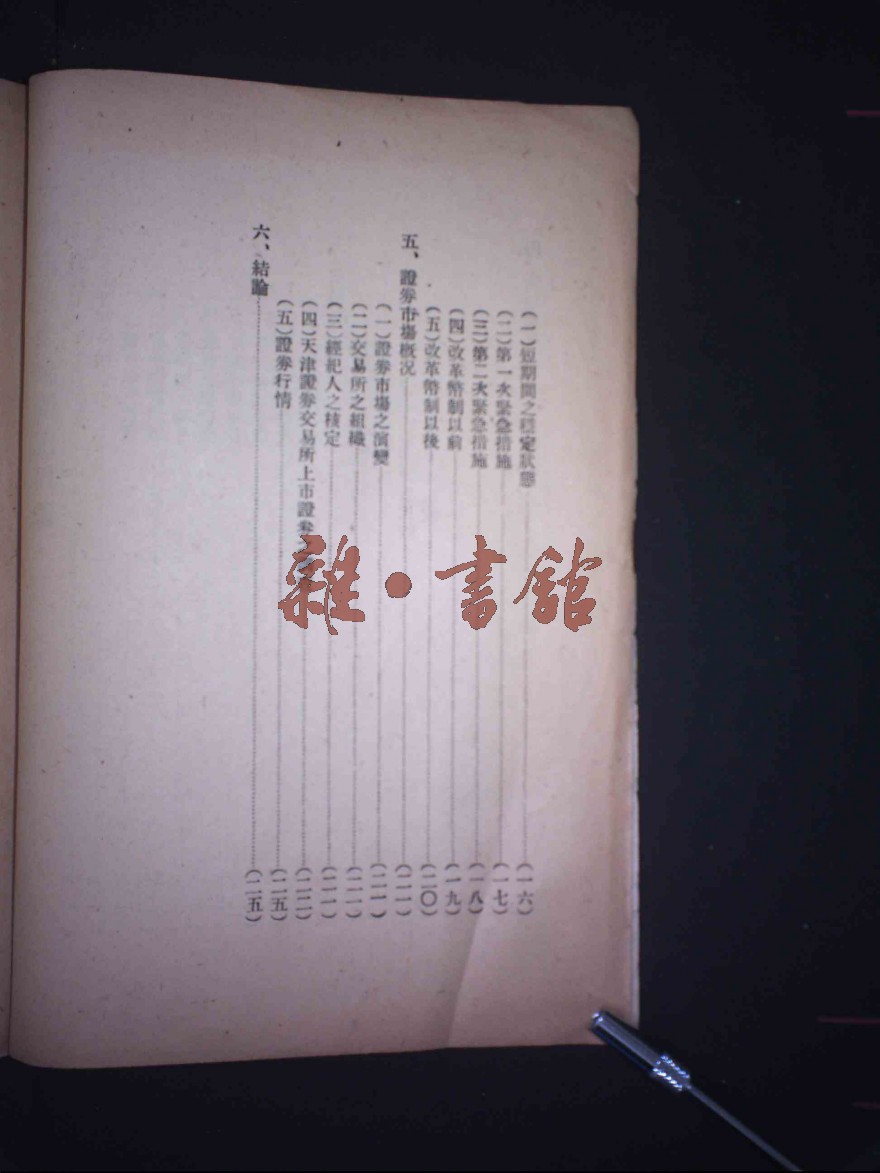 (一)短期間之穩定狀態………(一六)
(二)第一次緊急措施………(一七)
(三)第二次緊急措施………(一八)
(四)改革幣制以前………(一九)
(五)改革幣制以後………(二〇)
五、證券市場概況………(二一)
(一)證券市場之演變………(二一)
(二)交易所之組織………(二一)
(三)經紀人之核定………(二一)
(四)天津證券交易所上市證券………(二二)
(五)證券行情………(二五)
六、結論………(二五)
雜·書館